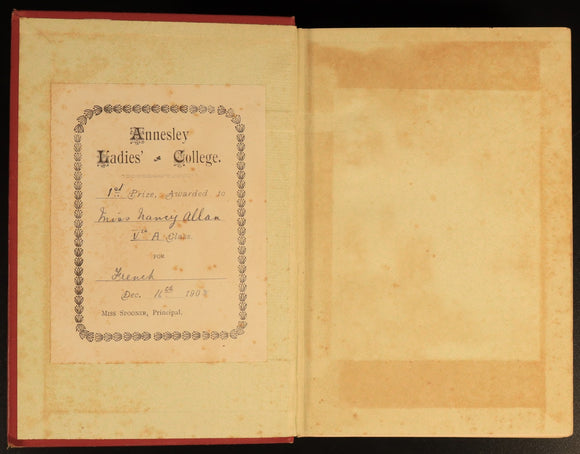 Annesley
Ladies' College.
1st Prize, Awarded to
Miss Nancy Allan
Vth A Class.
FOR
French
Dec. 16th 190
MISS SPOONER, Principal.